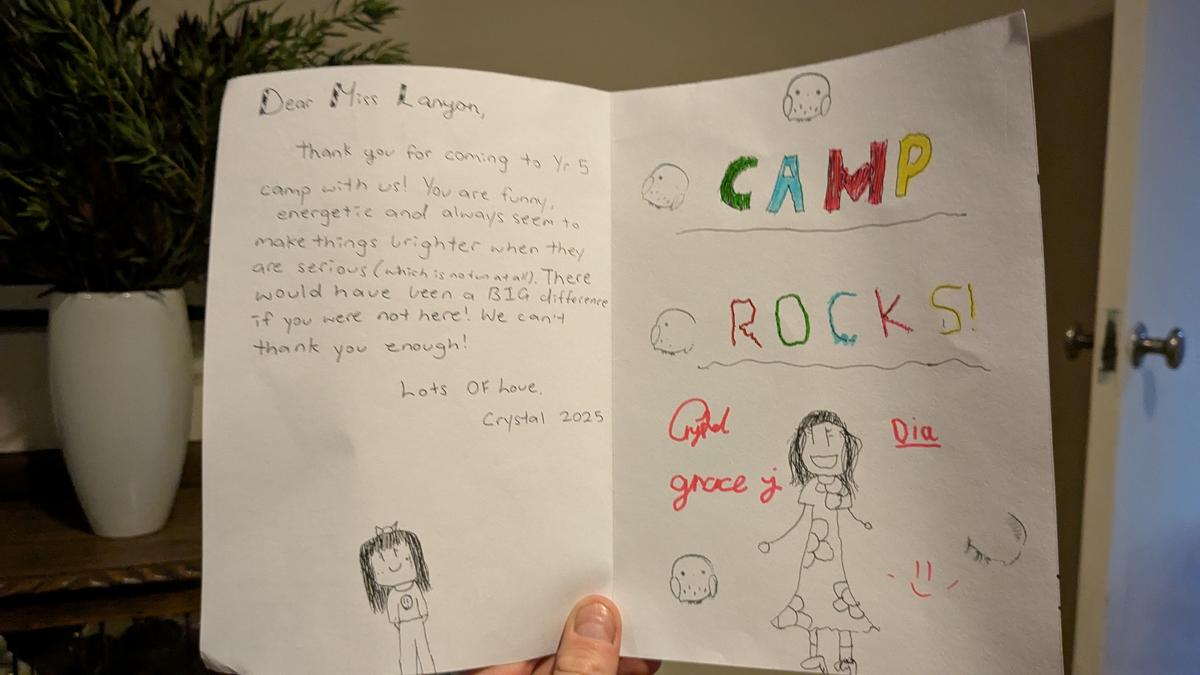 Dear Miss Lanyon,
Thank you for coming to Yr 5
camp with us! You are funny,
energetic and always seem to
make things brighter when they
are serious (which is not fun at all). There
would have been a BIG difference
if you were not here! We can't
thank you enough!
Lots OF Love.
Crystal 2025
CAMP
ROCKS!
Crystal
Dia
grace j